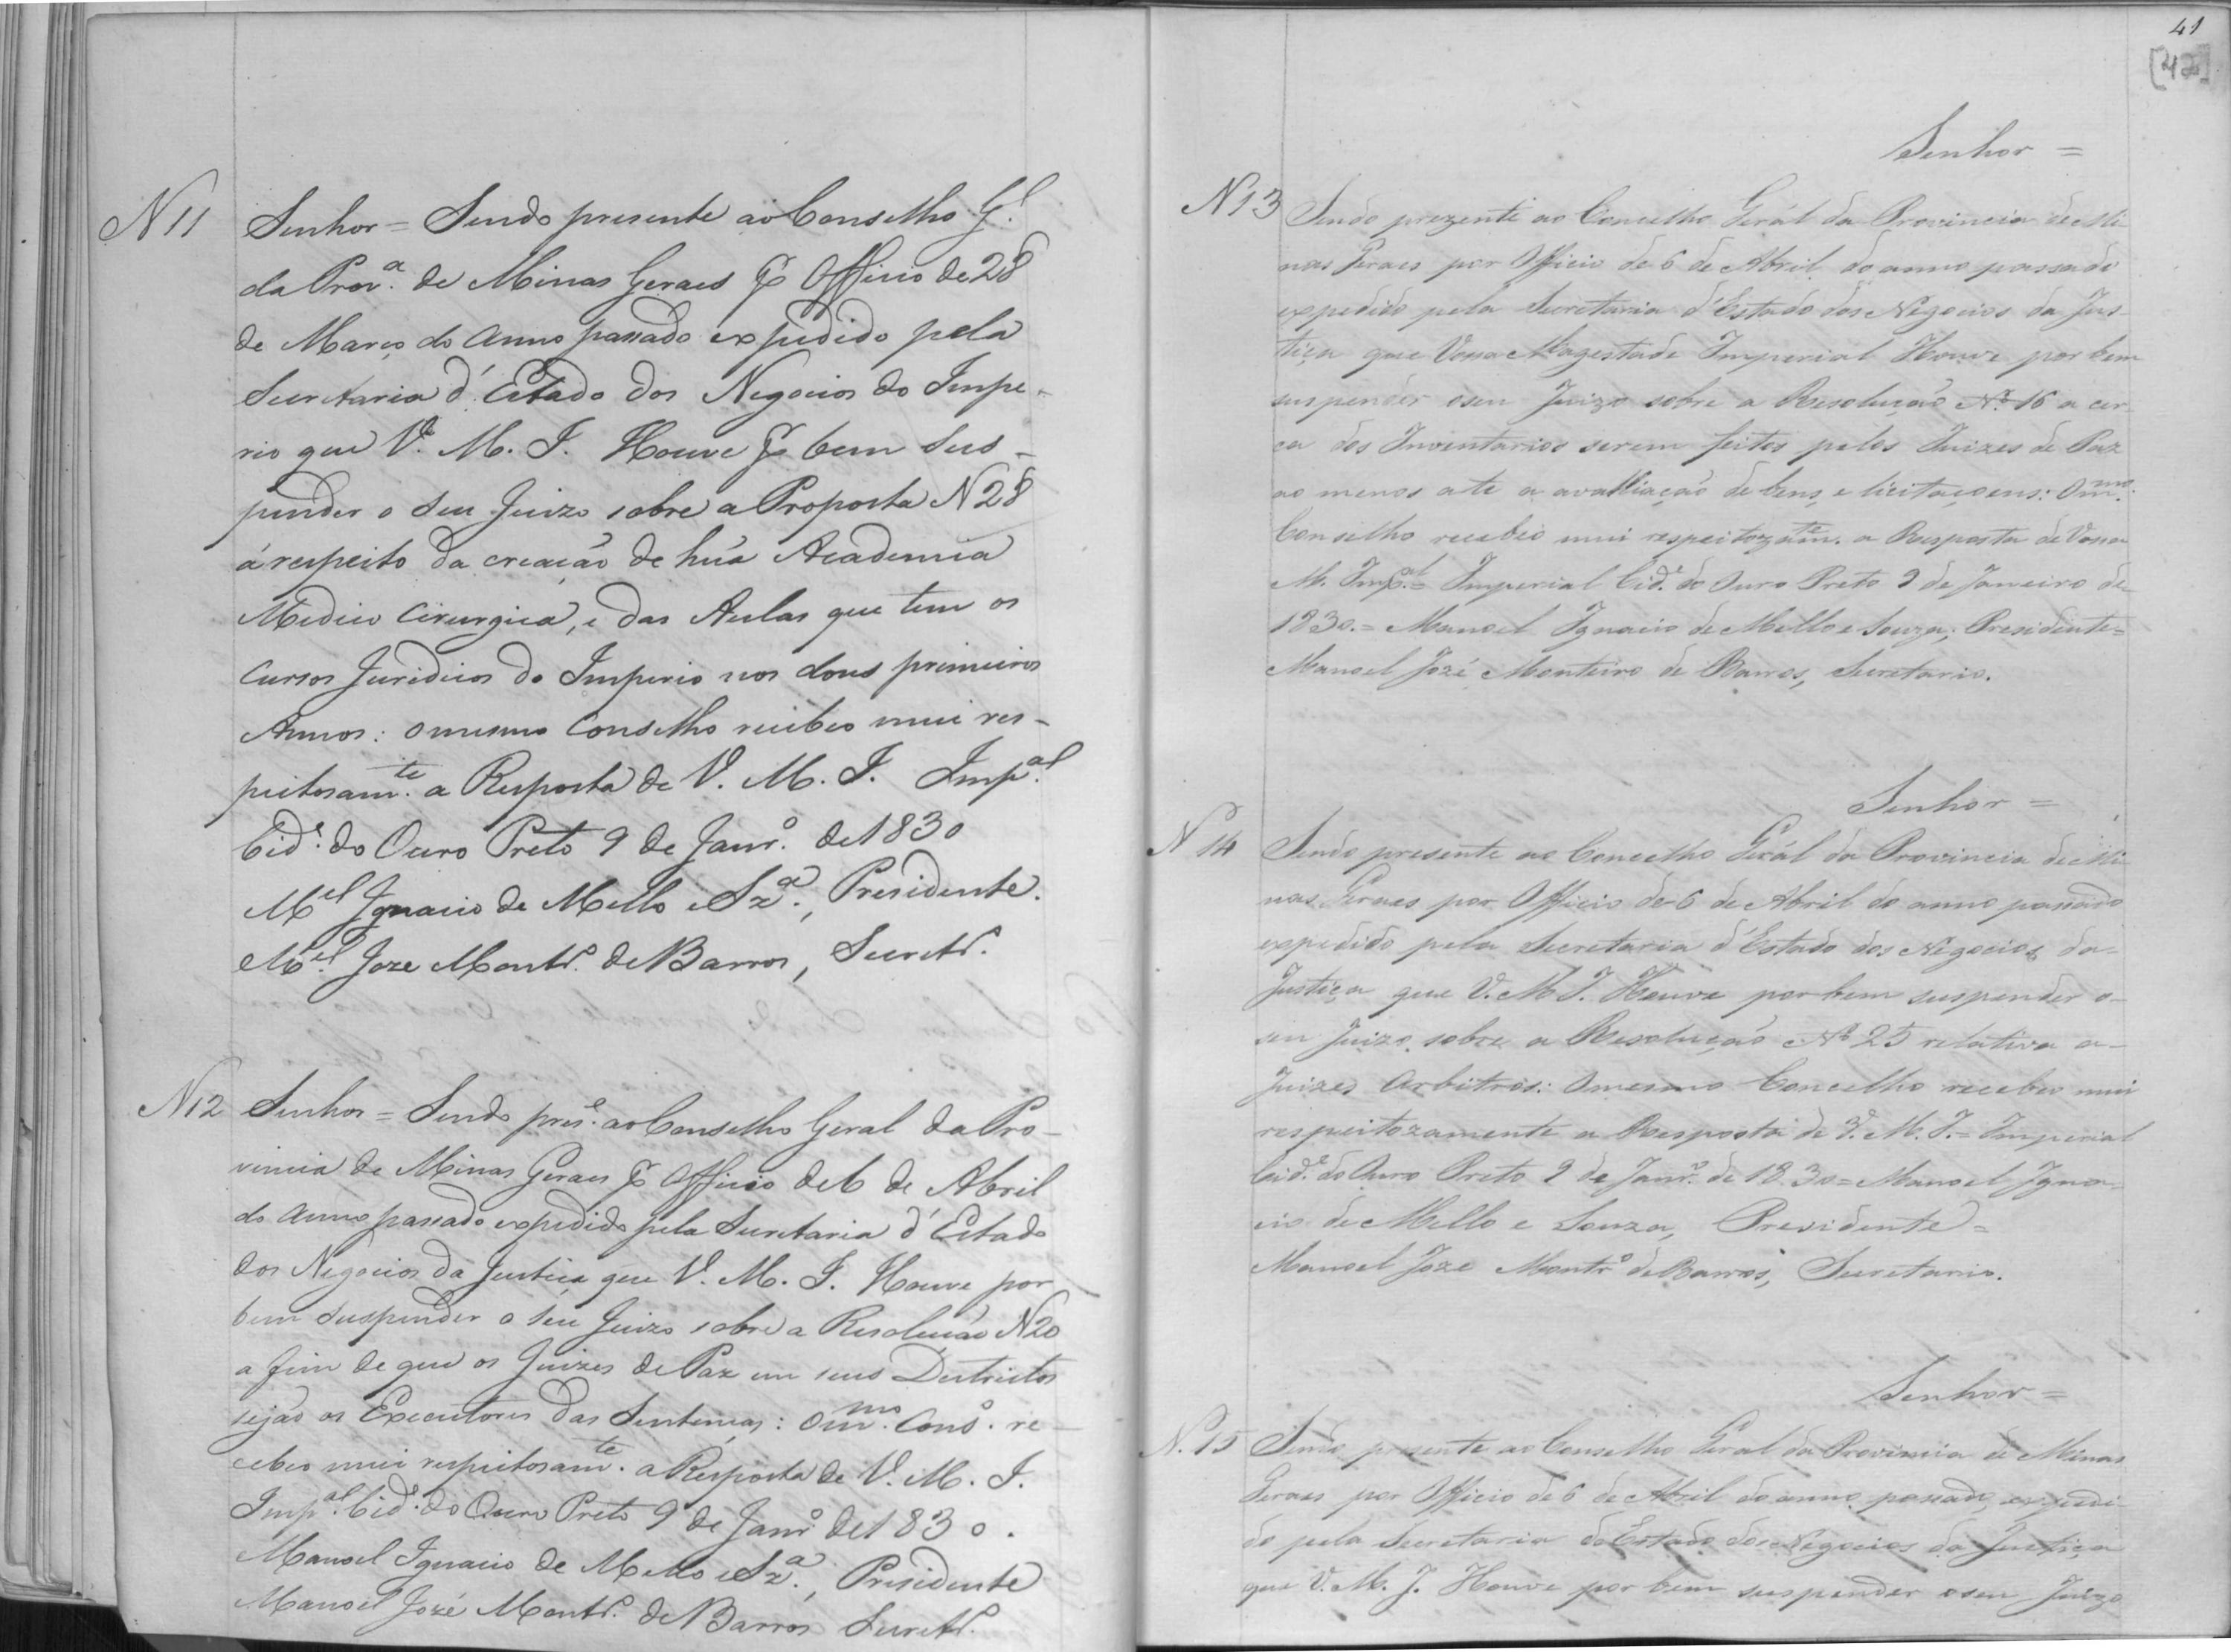 N 11 Senhor = Sendo presente ao Conselho G.l
da Prov.a de Minas Geraes p. Officio de 28
de Março do Anno passado expedido pela
Secretaria d'Estado dos Negocios do Impe-
rio que V. M. I. Houve p. bem sus-
pender o seu Juizo sobre a Proposta N 28
á respeito da creação de hũa Academia
Medico Cirurgica, e das Aulas que tem os
Cursos Juridicos do Imperio nos dous primeiros
Annos: o mesmo Conselho recebeo mui res-
peitosam.te a Resposta de V. M. I. Imp.al
Cid.e do Ouro Preto 9 de Janr.o de 1830
M.el Ignacio de Mello e Sz.a, Presidente.
M.el Joze Montr.o de Barros, Secretr.o
N 12 Senhor = Sendo pres.e ao Conselho Geral da Pro-
vincia de Minas Geraes p. Officio de 6 de Abril
do Anno passado expedido pela Secretaria d'Estado
dos Negocios da Justiça que V. M. I. Houve por
bem suspender o seu Juizo sobre a Resolução N 20
a fim de que os Juizes de Paz em seus Destrictos
sejão os Executores das Sentenças: o m.mo Cons.o re-
cebeo mui respeitosam.te a Resposta de V. M. I.
Imp.al Cid.e do Ouro Preto 9 de Janr.o de 1830.
Manoel Ignacio de Mello e Sz.a, Presidente
Manoel Jozé Montr.o de Barros Secretr.o
41
[42]
Senhor =
N 13 Sendo prezente ao Concelho Gerál da Provincia de Mi-
nas Geraes por Officio de 6 de Abril do anno passado
expedido pela Secretaria d'Estado dos Negocios da Jus-
tiça que Vossa Magestade Imperial Houve por bem
suspender o seu Juizo sobre a Resolução N.o 16 a cer-
ca dos Inventarios serem feitos pelos Juizes de Paz
ao menos ate a avalliação de bens, e licitaçoens: O m.mo
Conselho recebeo mui respeitozam.te a Resposta de Vossa
M. Imp.al = Imperial Cid.e do Ouro Preto 9 de Janeiro de
1830. = Manoel Ignacio de Mello e Souza, Presidente =
Manoel Jozé Monteiro de Barros, Secretario.
Senhor =
N 14 Sendo presente ao Concelho Gerál da Provincia de Mi-
nas Geraes por Officio de 6 de Abril do anno passado
expedido pela Secretaria d'Estado dos Negocios da
Justiça que V. M. I. Houve por bem suspender o
seu Juizo sobre a Resolução N.o 25 relativa a
Juizes Arbitros: O mesmo Concelho recebeo mui
respeitozamente a Resposta de V. M. I. = Imperial
Cid.e do Ouro Preto 9 de Janr.o de 1830 = Manoel Igna-
cio de Mello e Souza, Presidente =
Manoel Joze Montr.o de Barros, Secretario.
Senhor =
N. 15 Sendo presente ao Conselho Geral da Provincia de Minas
Geraes por Officio de 6 de Abril do anno passado, expedi-
do pela Secretaria d'Estado dos Negocios da Justiça
que V. M. I. Houve por bem suspender o seu Juizo